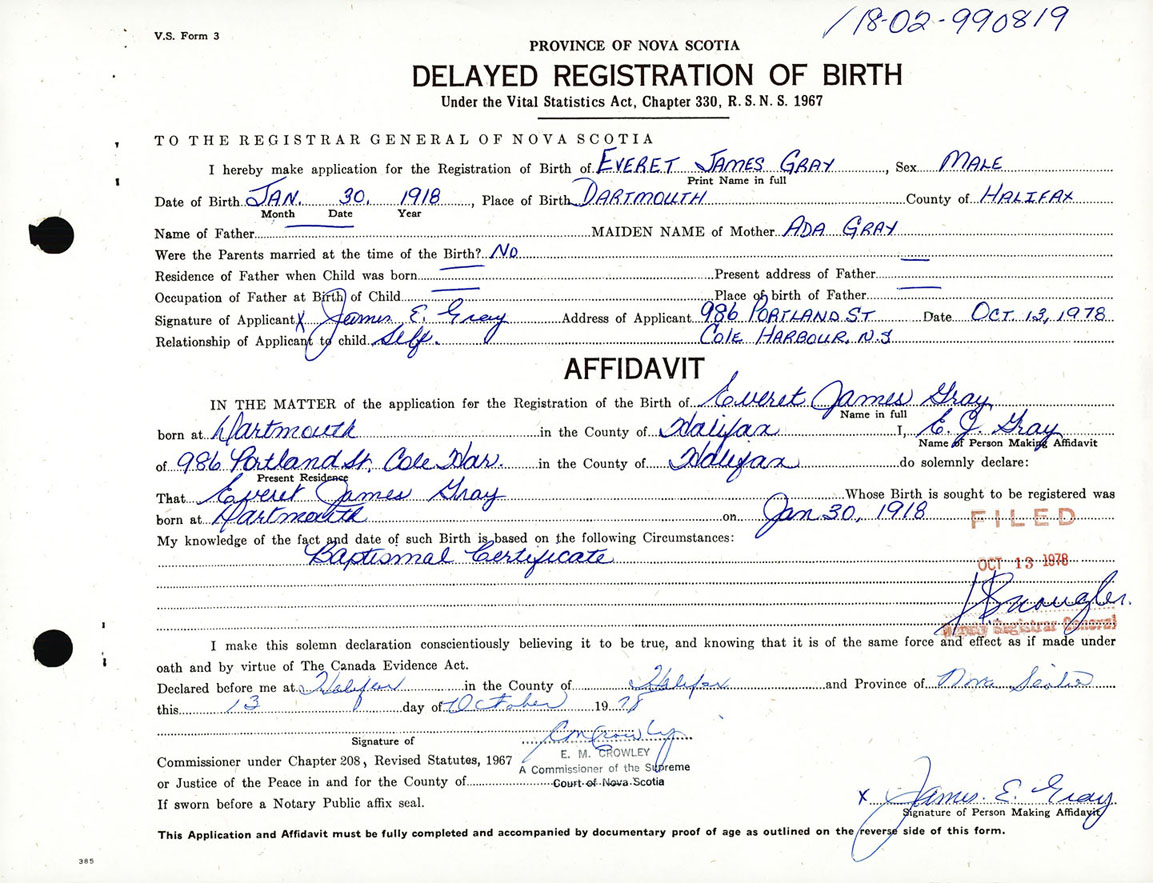 118-02-990819
V.S. Form 3
PROVINCE OF NOVA SCOTIA
DELAYED REGISTRATION OF BIRTH
Under the Vital Statistics Act, Chapter 330, R.S.N.S. 1967
TO THE REGISTRAR GENERAL OF NOVA SCOTIA
I hereby make application for the Registration of Birth of EVERET JAMES GRAY, Sex MALE
Print Name in full
Date of Birth JAN. 30, 1918, Place of Birth DARTMOUTH County of HALIFAX
Month Date Year
Name of Father MAIDEN NAME of Mother ADA GRAY
Were the Parents married at the time of the Birth? NO
Residence of Father when Child was born Present address of Father
Occupation of Father at Birth of Child Place of birth of Father
Signature of Applicant X James E. Gray Address of Applicant 986 PORTLAND ST Date OCT. 13, 1978
Relationship of Applicant to child Self. COLE HARBOUR, N.S
AFFIDAVIT
IN THE MATTER of the application for the Registration of the Birth of Everet James Gray
Name in full
born at Dartmouth in the County of Halifax I, E. J. Gray
Name of Person Making Affidavit
of 986 Portland St, Cole Har. in the County of Halifax do solemnly declare:
Present Residence
That Everet James Gray Whose Birth is sought to be registered was
born at Dartmouth on Jan 30, 1918
FILED
My knowledge of the fact and date of such Birth is based on the following Circumstances:
Baptismal Certificate
OCT 13 1978
Deputy Registrar General
I make this solemn declaration conscientiously believing it to be true, and knowing that it is of the same force and effect as if made under
oath and by virtue of The Canada Evidence Act.
Declared before me at Halifax in the County of Halifax and Province of Nova Scotia
this 13 day of October 1978
Signature of
E. M. CROWLEY
Commissioner under Chapter 208, Revised Statutes, 1967
A Commissioner of the Supreme
or Justice of the Peace in and for the County of
Court of Nova Scotia
X James E. Gray
If sworn before a Notary Public affix seal.
Signature of Person Making Affidavit
This Application and Affidavit must be fully completed and accompanied by documentary proof of age as outlined on the reverse side of this form.
385